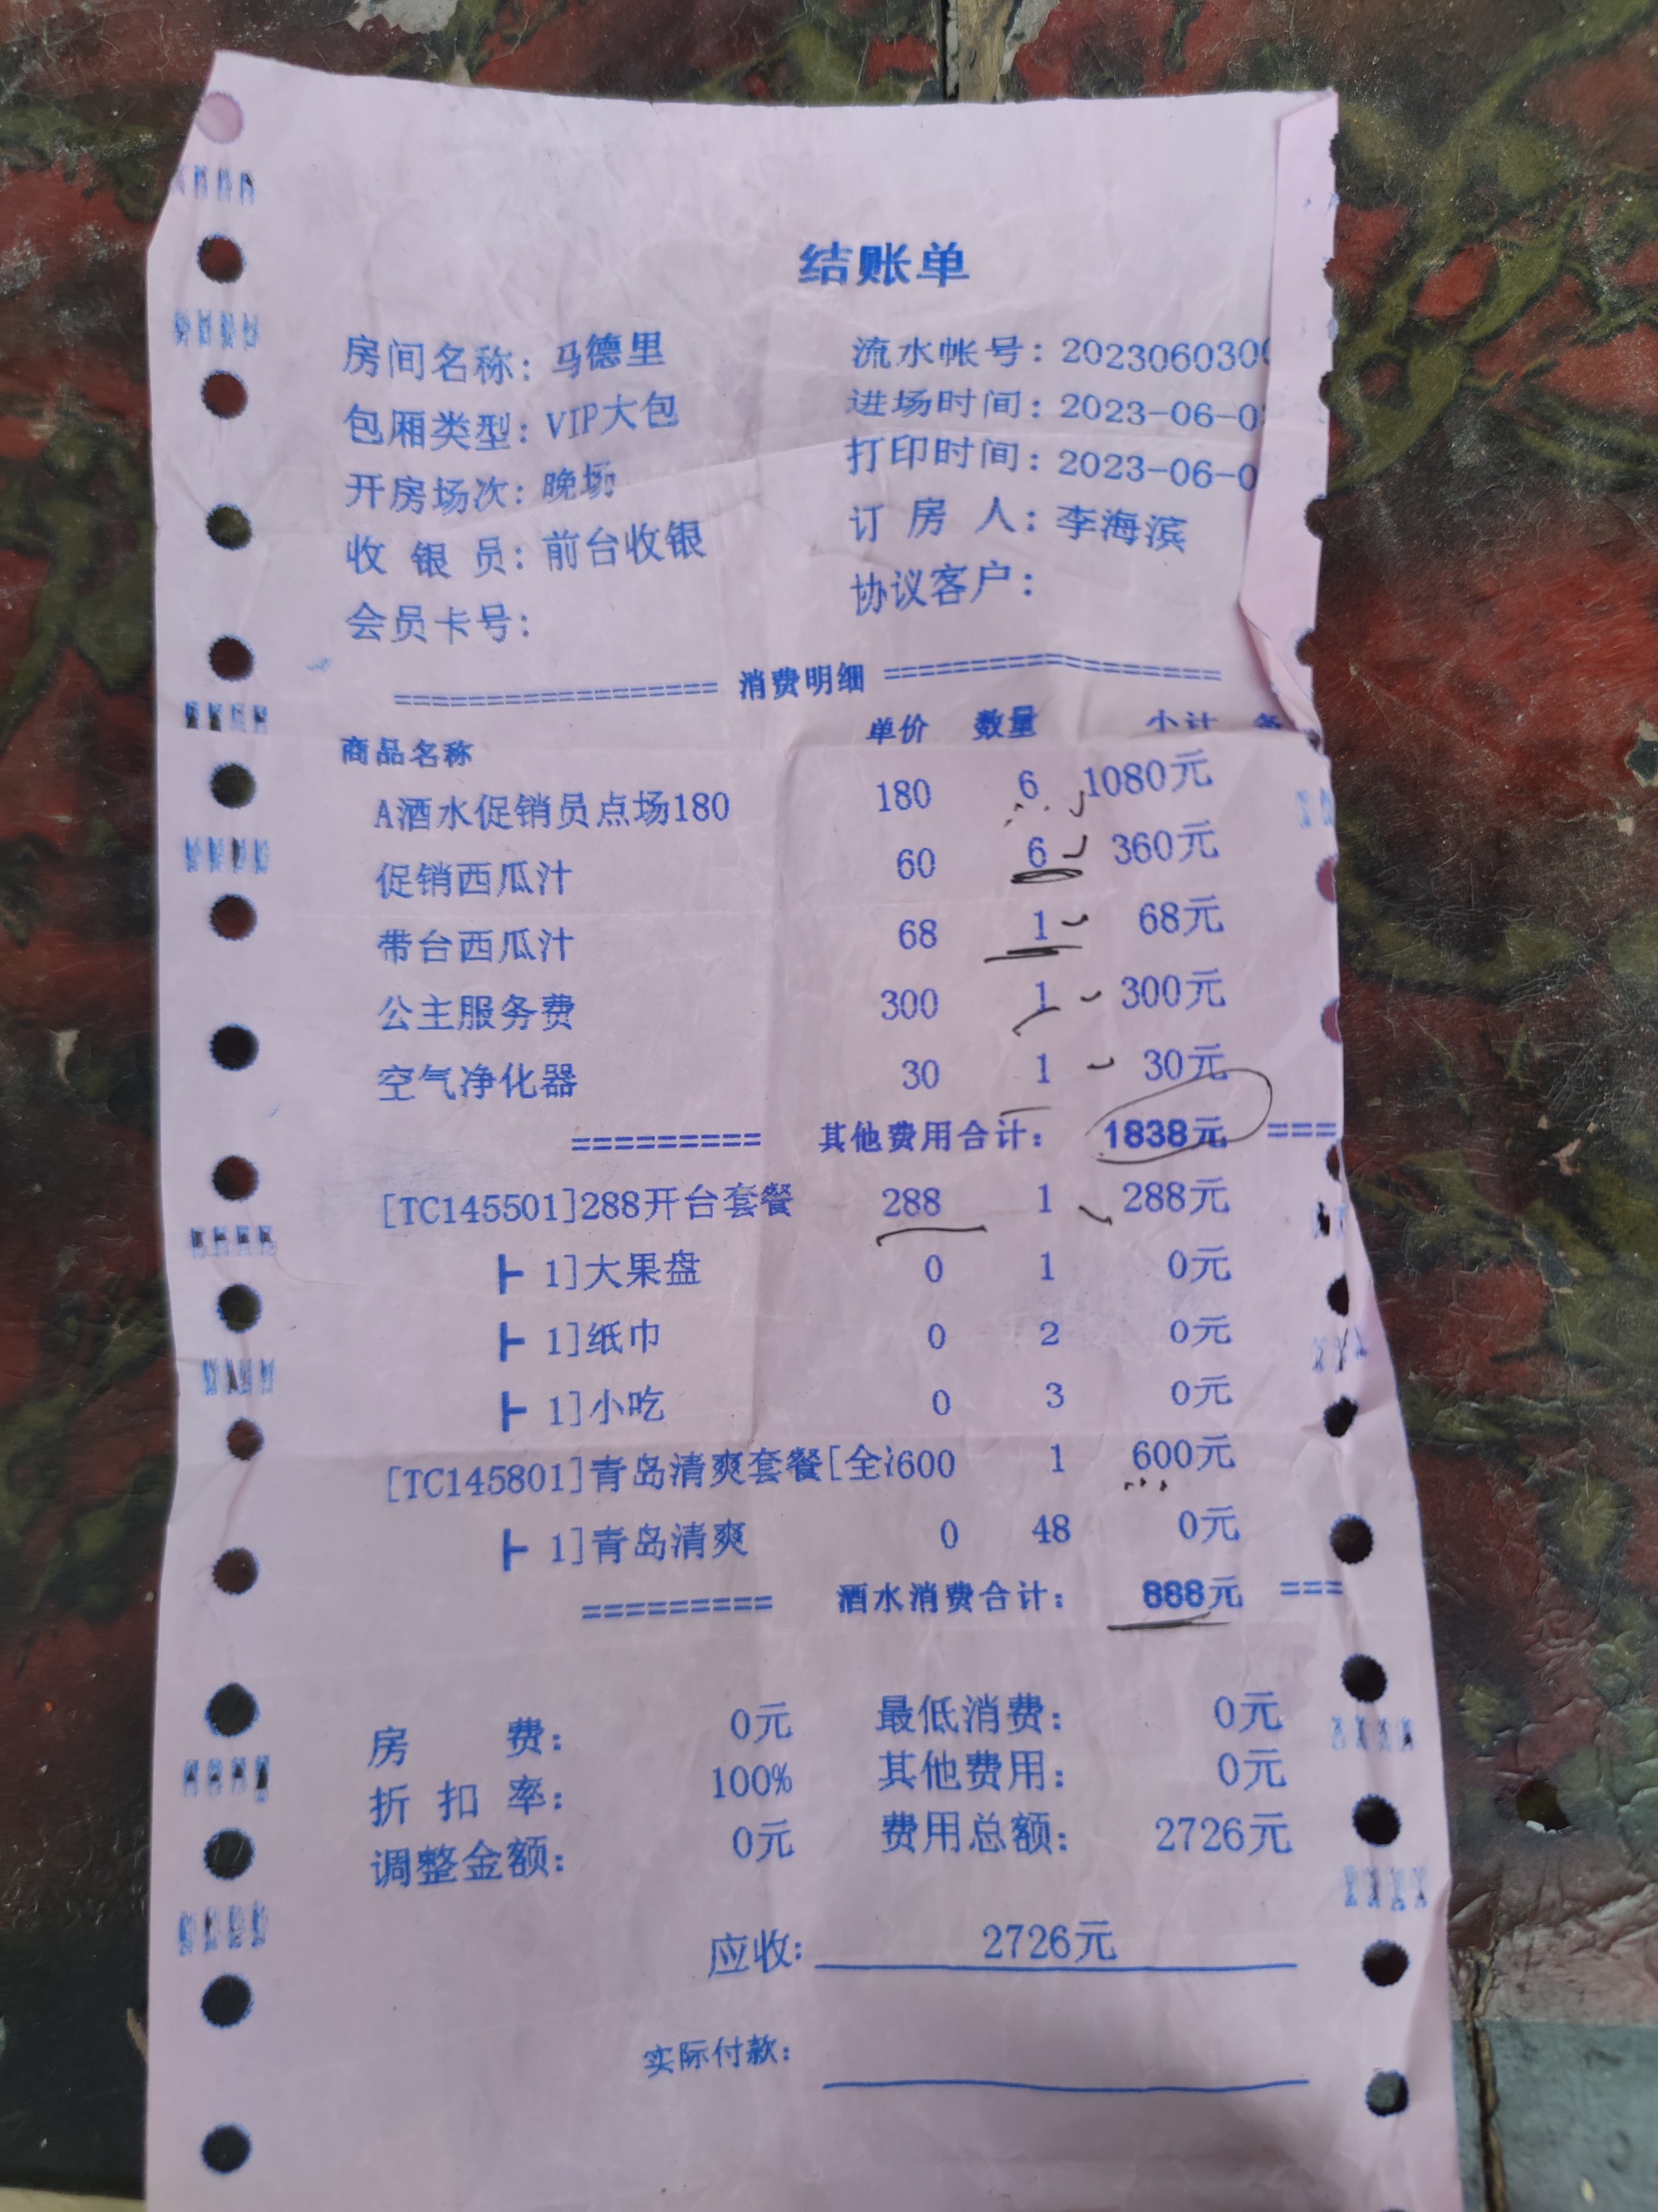 结账单
房间名称：马德里 流水帐号：202306030
包厢类型：VIP大包 进场时间：2023-06-0
开房场次：晚场 打印时间：2023-06-0
收 银 员：前台收银 订 房 人：李海滨
会员卡号： 协议客户：
================= 消费明细 =================
商品名称 单价 数量 小计
A酒水促销员点场180 180 6 1080元
促销西瓜汁 60 6 360元
带台西瓜汁 68 1 68元
公主服务费 300 1 300元
空气净化器 30 1 30元
========= 其他费用合计： 1838元 ===
[TC145501]288开台套餐 288 1 288元
┣ 1]大果盘 0 1 0元
┣ 1]纸巾 0 2 0元
┣ 1]小吃 0 3 0元
[TC145801]青岛清爽套餐[全 600 1 600元
┣ 1]青岛清爽 0 48 0元
========= 酒水消费合计： 888元 ===
房 费： 0元 最低消费： 0元
折 扣 率： 100% 其他费用： 0元
调整金额： 0元 费用总额： 2726元
应收： 2726元
实际付款：